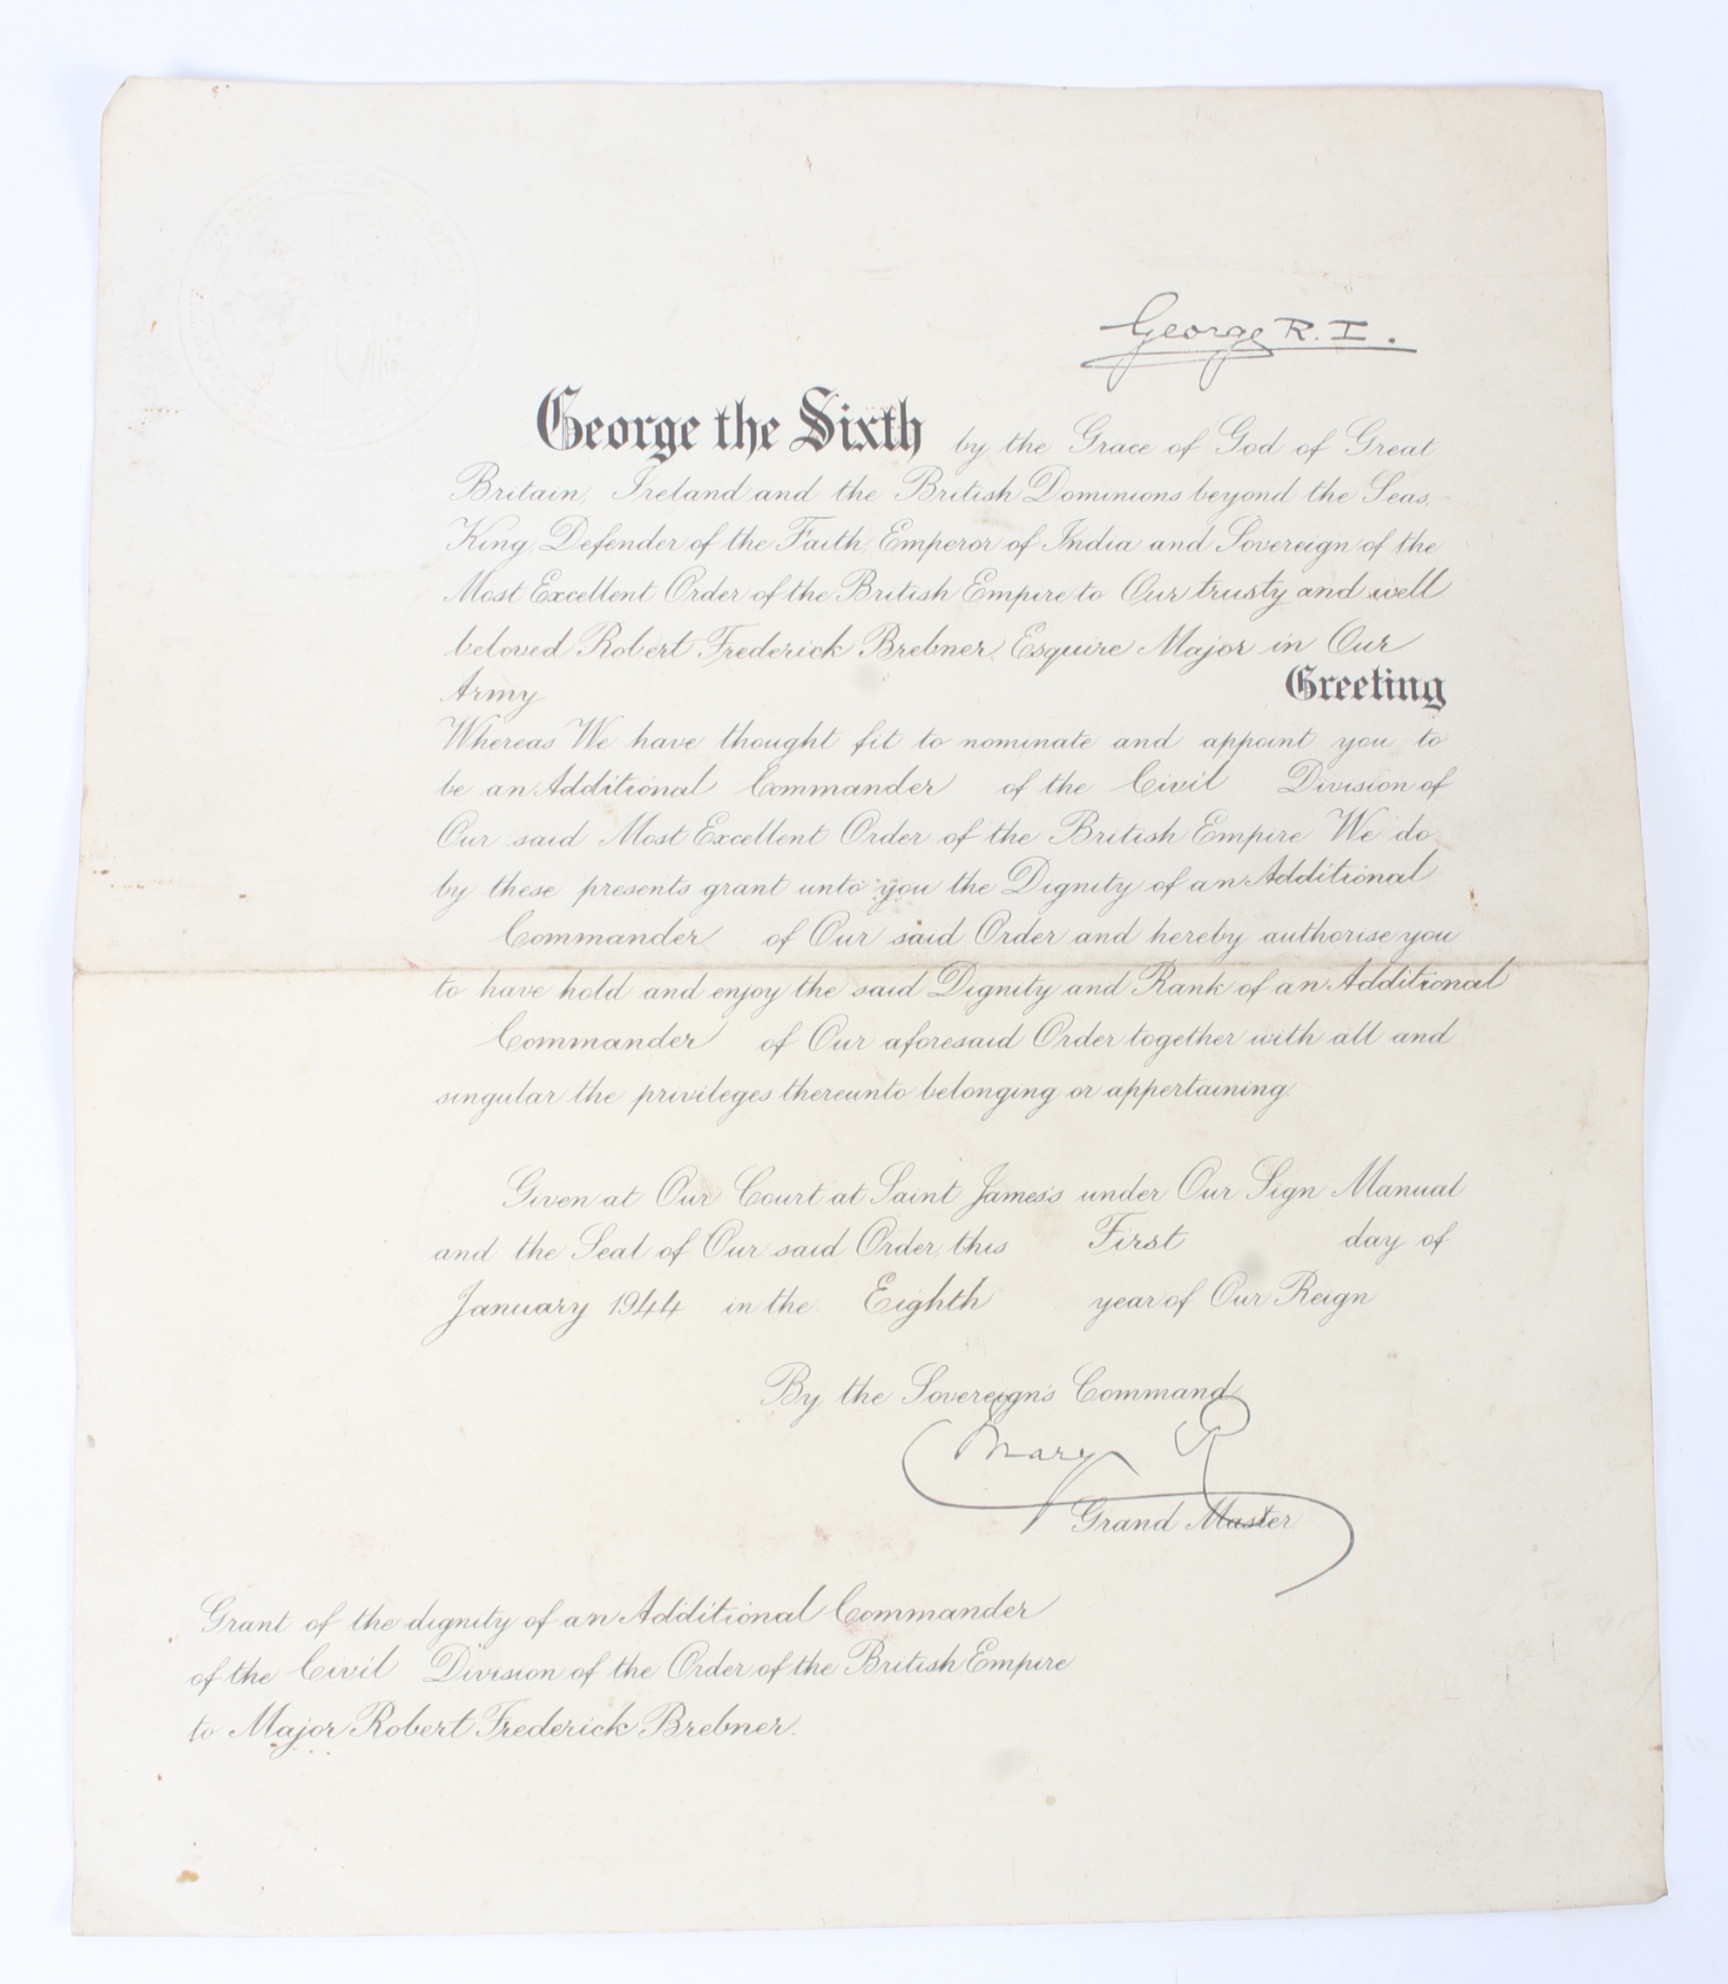 George R. I.
George the Sixth by the Grace of God of Great
Britain, Ireland and the British Dominions beyond the Seas,
King, Defender of the Faith, Emperor of India and Sovereign of the
Most Excellent Order of the British Empire to Our trusty and well
beloved Robert Frederick Brebner Esquire Major in Our
Army Greeting
Whereas We have thought fit to nominate and appoint you to
be an Additional Commander of the Civil Division of
Our said Most Excellent Order of the British Empire We do
by these presents grant unto you the Dignity of an Additional
Commander of Our said Order and hereby authorise you
to have hold and enjoy the said Dignity and Rank of an Additional
Commander of Our aforesaid Order together with all and
singular the privileges thereunto belonging or appertaining.
Given at Our Court at Saint James's under Our Sign Manual
and the Seal of Our said Order, this First day of
January 1944 in the Eighth year of Our Reign
By the Sovereign's Command
Mary R
Grand Master.
Grant of the dignity of an Additional Commander
of the Civil Division of the Order of the British Empire
to Major Robert Frederick Brebner.